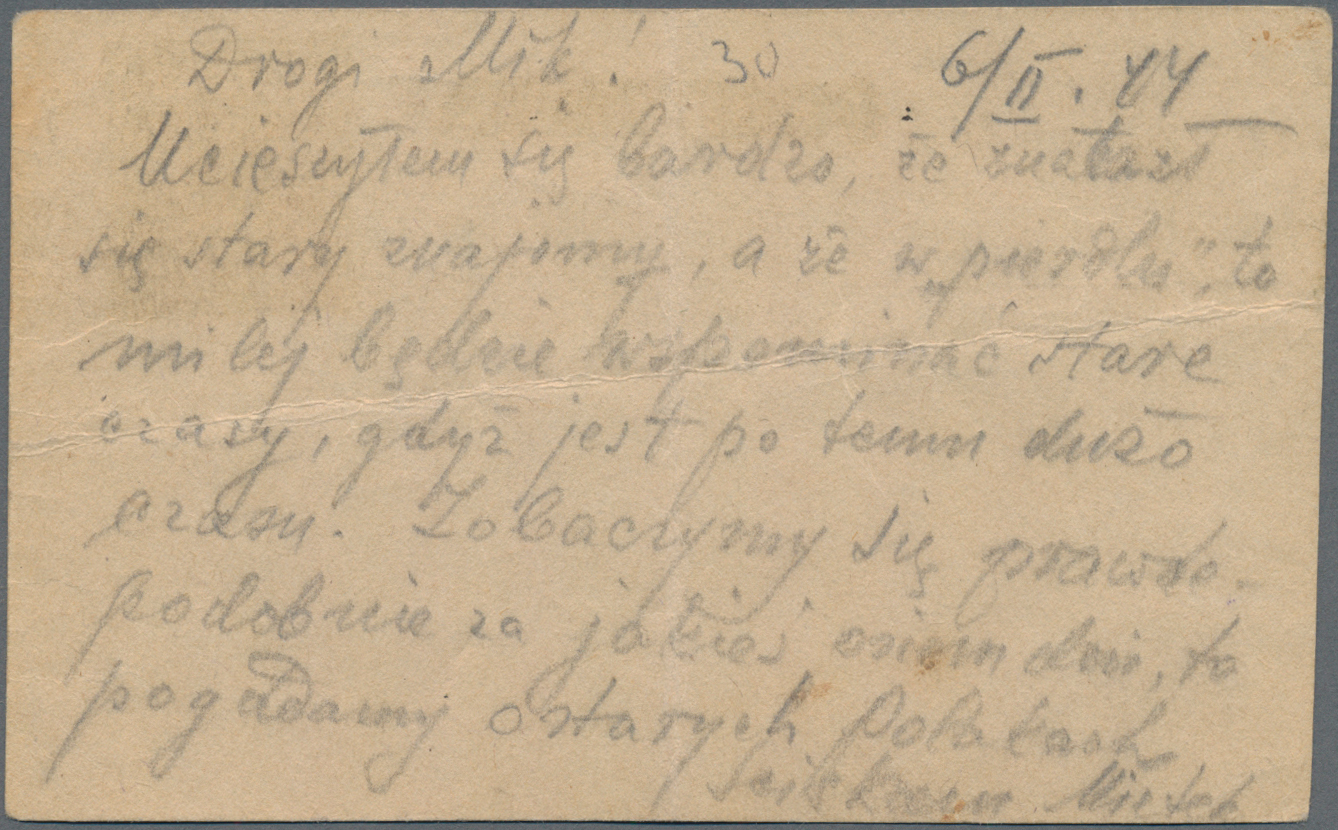 Drogi Mik! 30 6/II.44
Ucieszyłem się bardzo, że znalazł
się stary znajomy, a że w „pierdlu", to
milej będzie wspominać stare
czasy, gdyż jest po temu dużo
czasu. Zobaczymy się prawdo-
podobnie za jakieś osiem dni, to
pogadamy o starych Polakach
Mietek